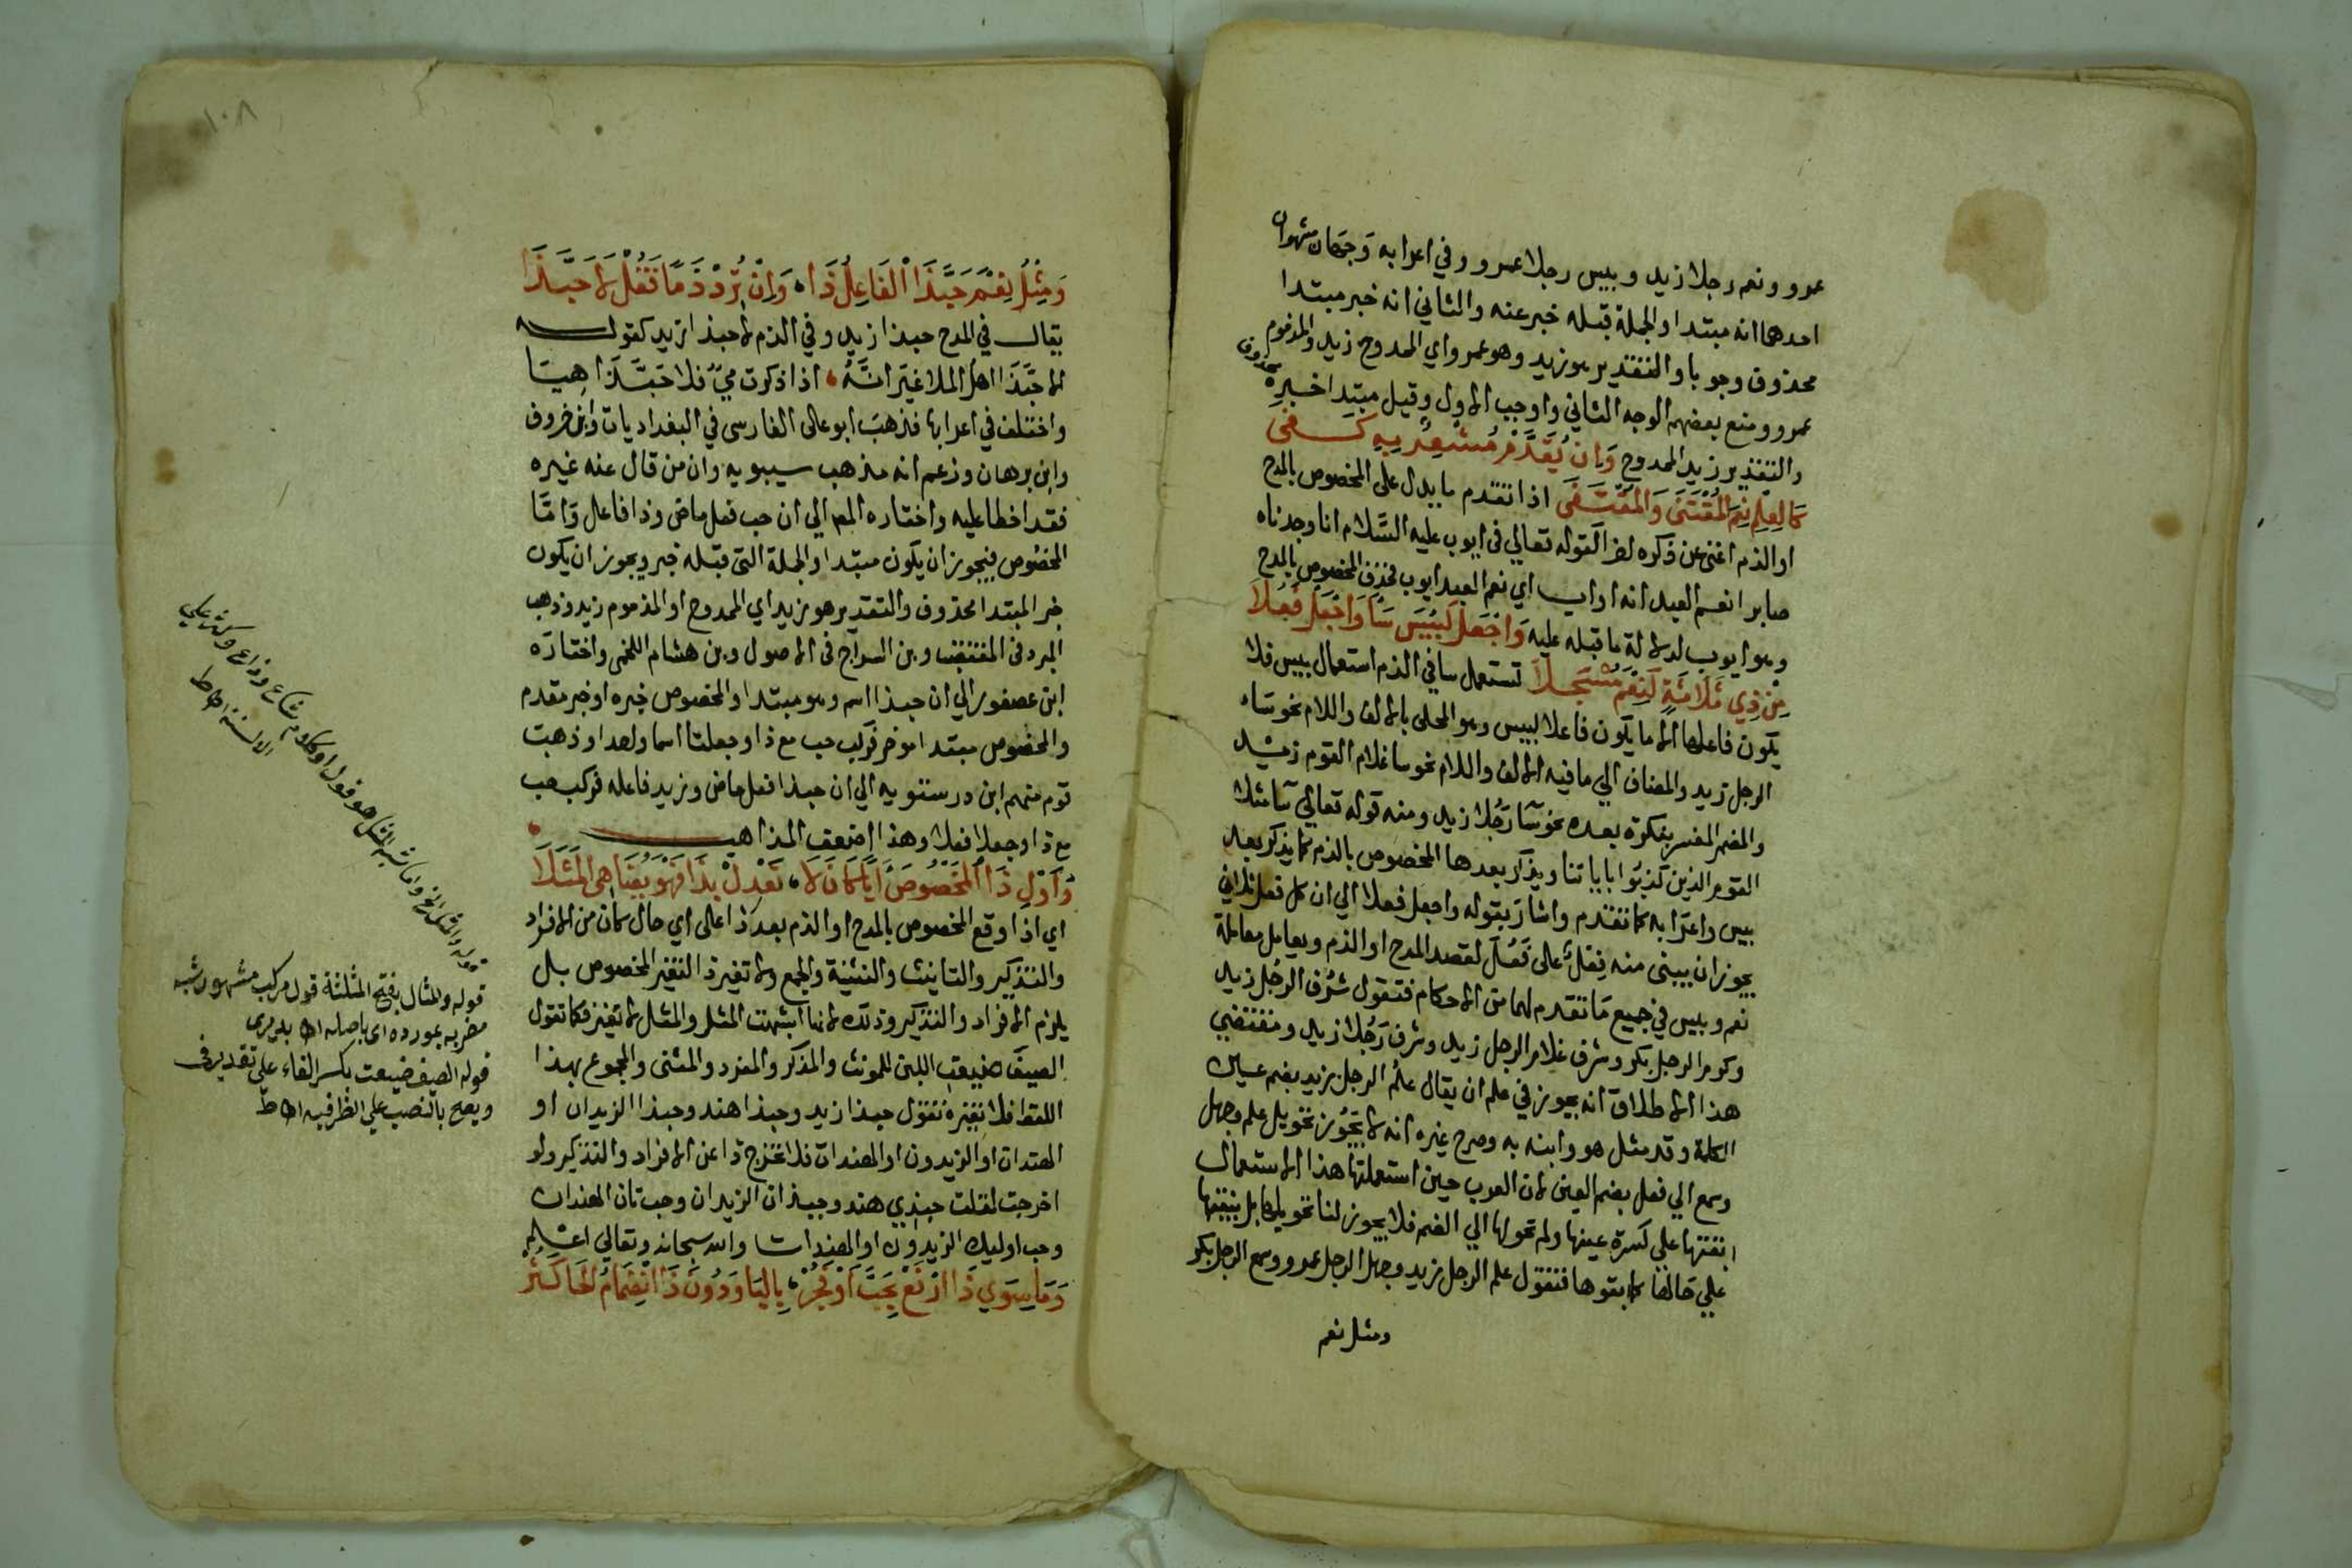 عمرو ونعم رجلا زيد وبيس رجلا عمرو وفي اعرابه وجهان مشهوران
احدهما انه مبتدا والجملة قبله خبر عنه والثاني انه خبر مبتدا
محذوف وجوبا والتقدير هو زيد وهو عمرو اي الممدوح زيد والمذموم
عمرو ومنع بعضهم الوجه الثاني واوجب الاول وقيل مبتدا خبره محذوف
والتقدير زيد الممدوح وَاِن يُقَدَّم مُشْعِرٌ بِهِ كَفى
كالعِلْمُ نِعْمَ المُقْتَنَى وَالمُقْتَفَى اذا تقدم ما يدل على المخصوص بالمدح
او الذم اغنى عن ذكره اخرا كقوله تعالي في ايوب عليه السَّلام انا وجدناه
صابرا نعم العبد انه اواب اي نعم العبد ايوب فحذف المخصوص بالمدح
وهو ايوب لدلالة ما قبله عليه وَاجْعَل كَبِئْسَ سَاءَ وَاجْعَل فَعُلَا
مِن ذِي ثَلَاثَةٍ كَنِعْمَ مُسْجَلَا تستعمل سا في الذم استعمال بيس فلا
يكون فاعلها الا ما يكون فاعلا لبيس وهو المحلى بالالف واللام نحو سَاء
الرجل زيد والمضاف الي ما فيه الالف واللام نحو سا غلام القوم زيد
والمضمر المفسر بنكرة بعده نحو سَا رَجُلا زيد ومنه قوله تعالي سَا مثلا
القوم الذين كذبُوا باياتنا ويذكر بعدها المخصوص بالذم كما يذكر بعد
بيس واعرَابه كما تقدم واشارَ بقوله واجعل فعلا الي ان كل فعل ثلاثي
يجوز ان يبنى منه فِعْلٌ على فَعُلَ لقصد المدح او الذم ويعامل معاملة
نعم وبيس في جميع مَا تقدم لهما من الاحكام فتقول شَرُف الرجُل زيد
وكرم الرجل بكر وشرف غلام الرجل زيد وشرف رَجُلا زيد ومقتضي
هذا الاطلاق انه يجوز في علم ان يقال علُم الرجل زيد بضم عين
الكلمة وقد مثل هو وابنه به وصرح غيره انه لا يَجُوز تحويل علم وجهل
وسمع الي فعل بضم العين لان العرب حين استعملتها هذا الاستعمال
ابقتها علي كسرة عينها ولم تحولها الي الضم فلا يجوز لنا تحويلها بل نبقيها
علي حالها كما ابقوها فتقول علم الرجل زيد وجهل الرجل عمرو وسمع الرجل بكر
ومثل نعم
١٠٨
وَمِثْلُ نِعْمَ حَبَّذَا الْفَاعِلُ ذَا، وَاِنْ تُرِدْ ذَمًّا فَقُلْ لَا حَبَّذَا
يقال في المدح حبذا زيد وفي الذم لا حبذا زيد كقوله
الا حَبَّذَا اهل الملا غَيرَ انَّهُ، اذا ذكرت ميٌّ فلا حَبَّذَا هِيَا
واختلف في اعرابها فذهبَ ابو على الفارسى في البغداديات وابن خروف
وابن برهان وزعم انه مذهب سيبويه وان من قال عنه غيره
فقد اخطا عليه واختاره المص الي ان حب فعل ماض وذا فاعل وَامَّا
المخصُوص فيجوز ان يكون مبتدا والجملة التي قبله خبر ويجوز ان يكون
خبر المبتدا محذوف والتقدير هو زيد اي الممدوح او المذموم زيد وذهب
المبرد في المقتضب وبن السراج في الاصول وبن هشام اللخمى واختارَه
ابن عصفور الي ان حبذا اسم وهو مبتدا والمخصوص خبره او خبر مقدم
والمخصوص مبتدا موخر فركب حب مع ذا وجعلتا اسما واحدا وذهب
قوم منهم ابن درستويه الي ان حبذا فعل ماض وزيد فاعله فركب حب
مع ذا وجعلا فعلا وهذا اضعف المذاهب
وَاَوْلِ ذَا الْمَخْصُوصَ اَيًّا كَانَ لَا، تَعْدِلْ بِذَا فَهْوَ يُضَاهِى الْمَثَلَا
اي اذا وقع المخصوص بالمدح او الذم بعد ذا على اي حال كان من الافراد
والتذكير والتانيث والتثنية والجمع ولا تغير ذا لتغير المخصوص بل
يلزم الافراد والتذكير وذلك لانها اشبهت المثل والمثل لا يغير فكما تقول
الصيفَ ضيعتِ اللبن للمونث والمذكر والمفرد والمثنى والمجموع بهذا
اللفظ فلا تغيره تقول حبذا زيد وحبذا هند وحبذا الزيدان او
الهندان او الزيدون او الهندات فلا تخرج ذا عن الافراد والتذكير ولو
اخرجت لقلت حبذي هند وحبذان الزيدان وحبتان الهندان
وحب اوليك الزيدون او الهندات والله سبحانه وتعالي اعلم
وَمَا سِوَي ذَا ارْفَعْ بِحَبَّ اَوْ فَجُرْ، بِالبَا وَدُونَ ذَا انْضِمَامُ الْحَا كَثُر
قوله والمثال بفتح المثلثة قول مركب مشهور شبه
مضربه بمورده اى باصله اه
قوله الصيف ضيعت بكسر الفاء على تقدير في
ويصح بالنصب علي الظرفية اه ط